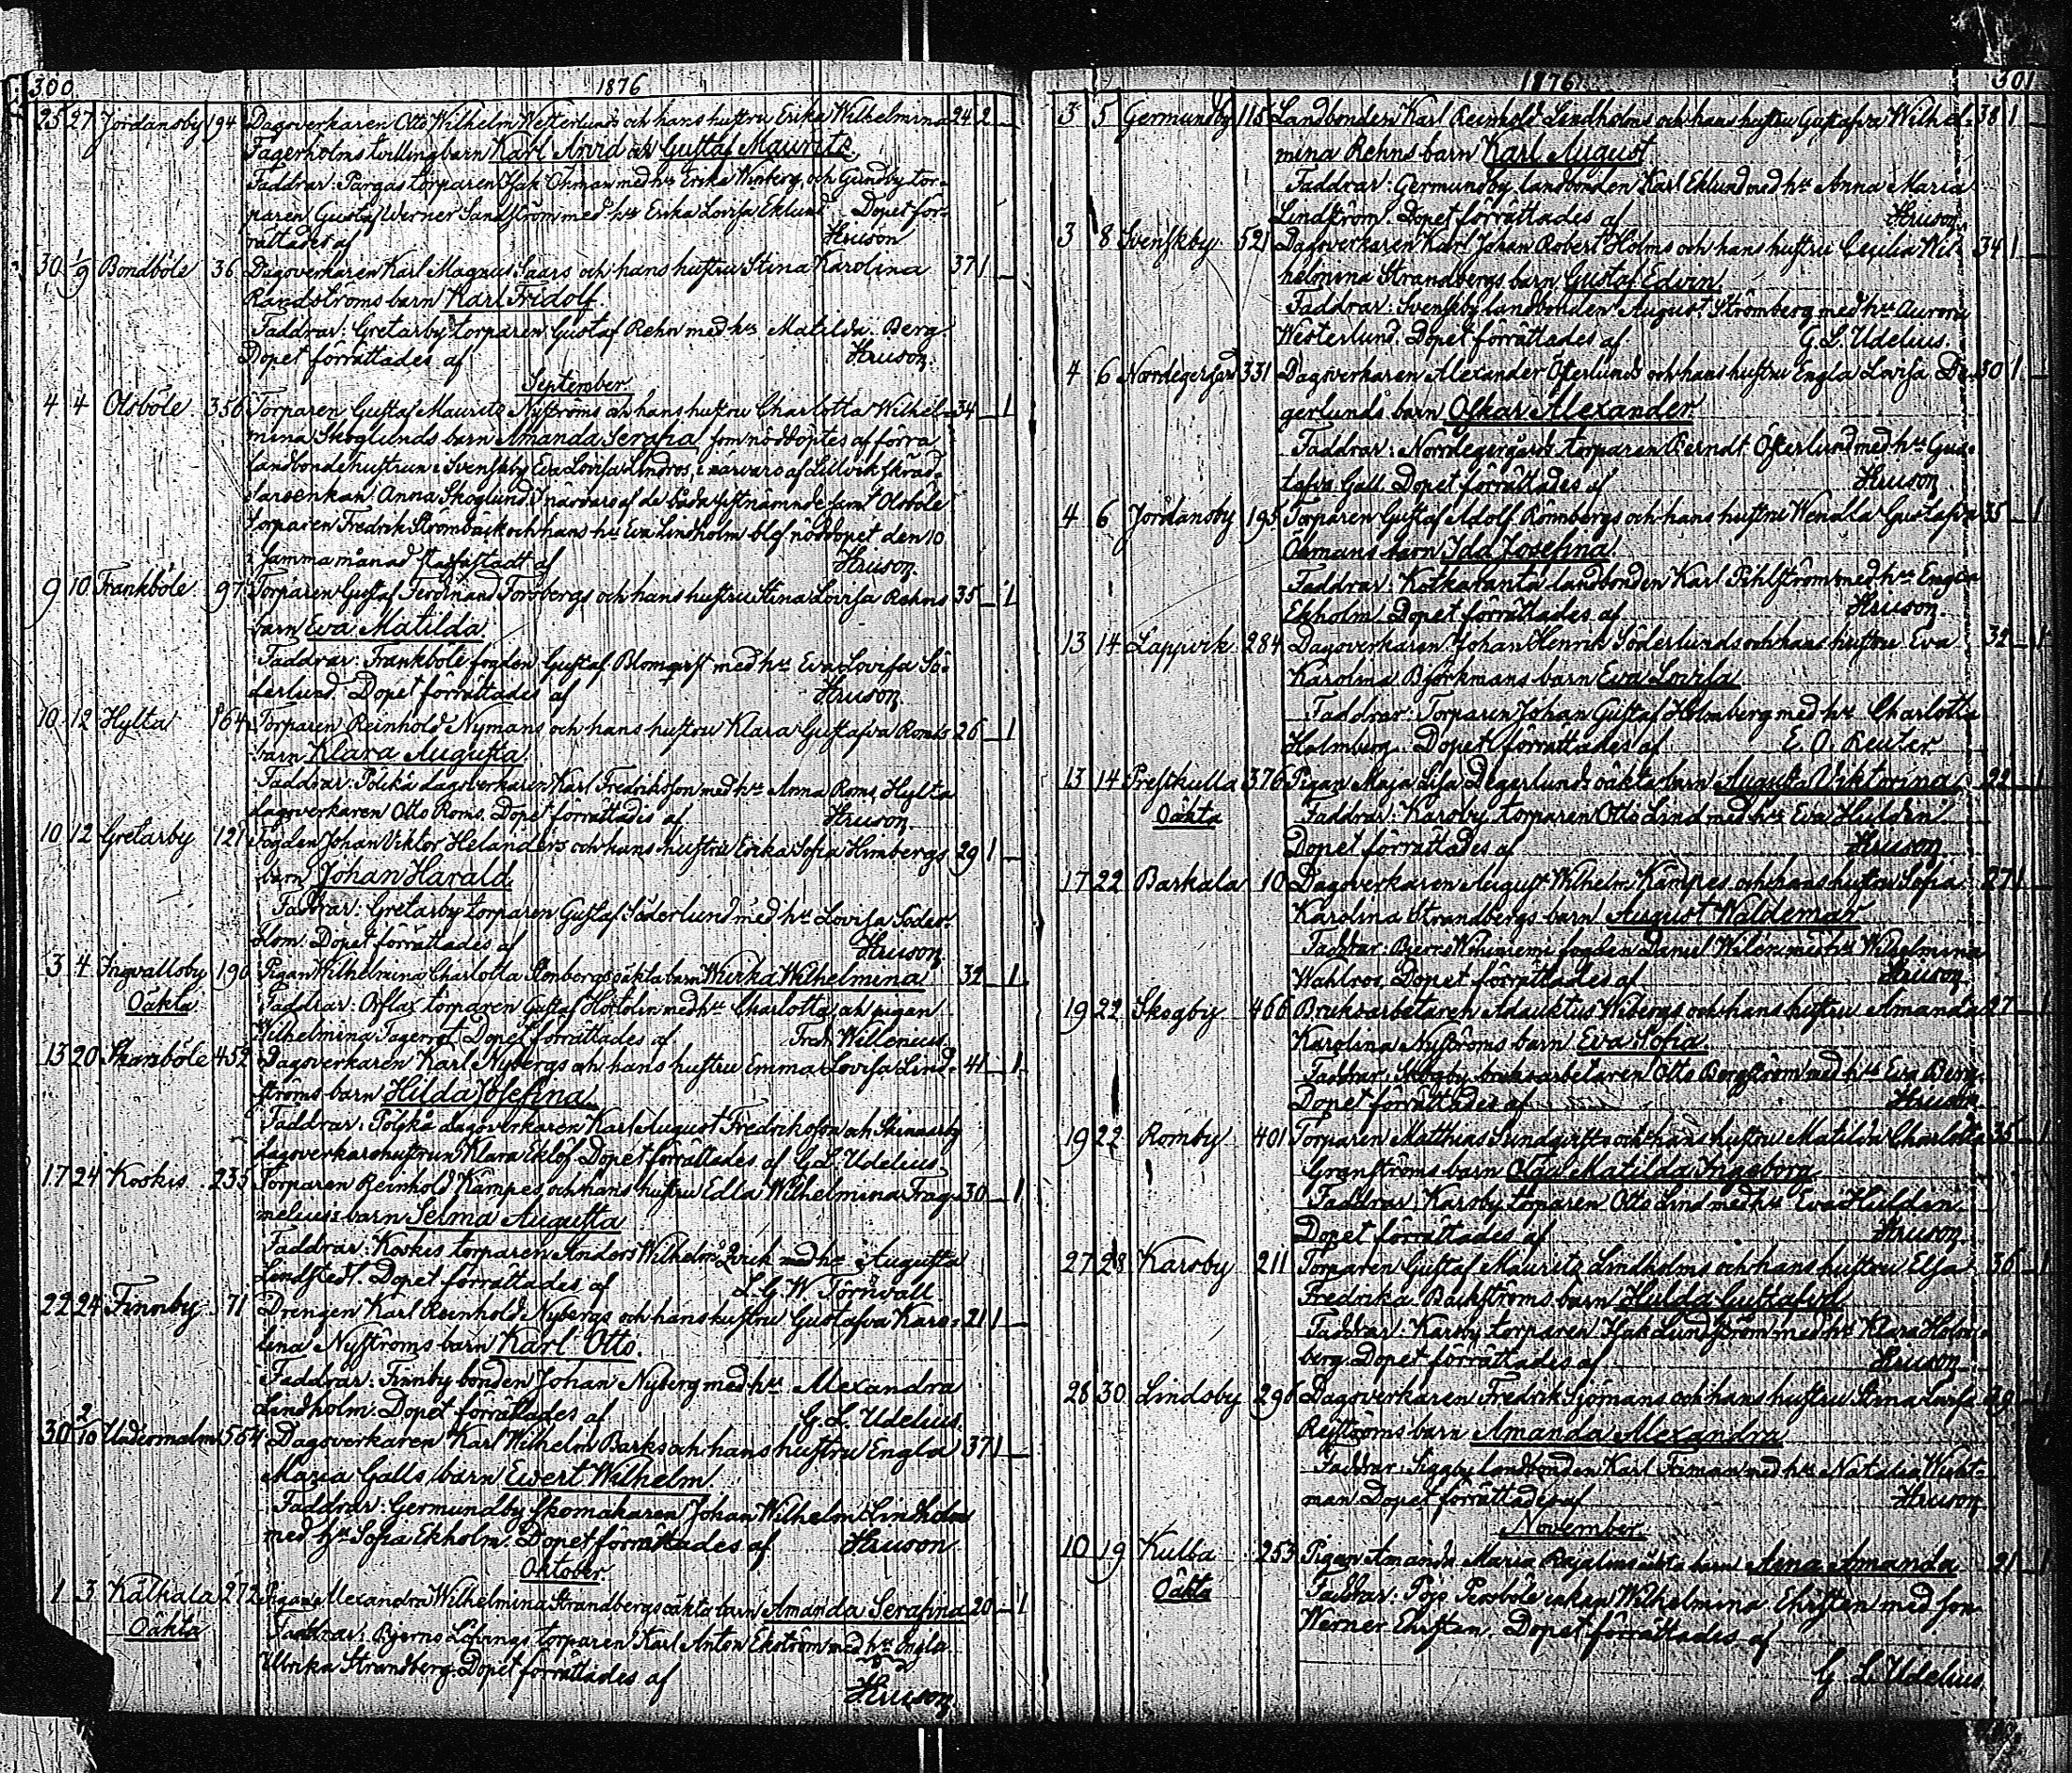 300 1876
25 27 Jordansby 194 Dagsverkaren Otto Wilhelm Westerlunds och hans hustru Erika Wilhelmina 24 2 —
Fagerholms tvillingbarn Karl Arvid och Gustaf Mauritz.
Faddrar: Pargas torparen Isak Öhman med h:s Erika Winberg och Gundby tor-
paren Gustaf Werner Sandström med h:s Erika Lovisa Eklund. Dopet för-
rättades af Heuson
30 1/9 Bondböle 36 Dagsverkaren Karl Magnus Saars och hans hustru Stina Karolina 37 1 —
Randströms barn Karl Fridolf.
Faddrar: Gretarby torparen Gustaf Rehn med h:s Matilda Berg.
Dopet förrättades af Heuson.
September.
4 4 Olsböle 356 Torparen Gustaf Mauritz Nyströms och hans hustru Charlotta Wilhel- 34 — 1
mina Skoglunds barn Amanda Serafia, som nöddöptes af förra
landbondehustrun i Svenskby Eva Lovisa Lindros, i närvaro af Lillvik skräd-
darsenkan Anna Skoglund. I närvaro af de båda sistnämnde samt Olsböle
torparen Fredrik Strömbäck och hans h:s Eva Lindholm blef nöddopet den 10
i samma månad stadfästadt af Heuson.
9 10 Frankböle 97 Torparen Gustaf Ferdinand Forsbergs och hans hustru Stina Lovisa Rehns 35 — 1
barn Eva Matilda
Faddrar: Frankböle fogden Gustaf Blomqvist med h:s Eva Lovisa Sö-
derlund. Dopet förrättades af Heuson.
10 12 Hylta 164 Torparen Reinhold Nymans och hans hustru Klara Gustafva Roms 26 — 1
barn Klara Augusta
Faddrar: Pölkä dagsverkaren Karl Fredriksson med h:s Anna Roms, Hylta
dagsverkaren Otto Roms. Dopet förrättades af Heuson.
10 12 Gretarby 121 Fogden Johan Viktor Helanders och hans hustru Erika Sofia Himbergs 29 1 —
barn Johan Harald.
Faddrar: Gretarby torparen Gustaf Söderlund med h:s Lovisa Söder-
blom. Dopet förrättades af Heuson.
3 4 Ingvallsby 190 Pigan Wilhelmina Charlotta Stenbergs oäkta barn Wierka Wilhelmina 32 — 1
Oäkta Faddrar: Orslax torparen Gustaf Hortolin med h:s Charlotta och pigan
Wilhelmina Fagerrot. Dopet förrättades af Fred. Willenius.
13 20 Skansböle 452 Dagsverkaren Karl Nybergs och hans hustru Emma Lovisa Lind- 41 — 1
ströms barn Hilda Josefina.
Faddrar: Pölkkä dagsverkaren Karl August Fredriksson och Skinnarby
dagsverkarehustrun Klara Eklöf. Dopet förrättades af G. L. Udelius
17 24 Koskis 235 Torparen Reinhold Kämpes och hans hustru Edla Wilhelmina Frag- 30 — 1
melius's barn Selma Augusta
Faddrar: Koskis torparen Anders Wilhelm med h:s Augusta
Lindstedt. Dopet förrättades af L. G. W. Törnvall.
22 24 Finnby 71 Drengen Karl Reinhold Nybergs och hans hustru Gustafva Karo- 21 1 —
lina Nyströms barn Karl Otto.
Faddrar: Finnby bonden Johan Nyberg med h:s Alexandra
Lindholm. Dopet förrättades af G. L. Udelius.
30 2/10 Wadermalm 554 Dagsverkaren Karl Wilhelm Barks och hans hustru Engla 37 1 —
Maria Galls barn Ewert Wilhelm
Faddrar: Germundby skomakaren Johan Wilhelm Lindholm
med h:s Sofia Ekholm. Dopet förrättades af Heuson
Oktober.
1 3 Kalkala 272 Pigan Alexandra Wilhelmina Strandbergs oäkta barn Amanda Serafina 20 — 1
Oäkta Faddrar: Bjerns Löfvings torparen Karl Anton Ekström med h:s Engla
Ulrika Strandberg. Dopet förrättades af Heuson.
1876 301
3 5 Germundby 115 Landbonden Karl Reinhold Lindholms och hans hustru Gustafva Wilhel- 38 1 —
mina Rehns barn Karl August
Faddrar: Germundby landbonden Karl Eklund med h:s Anna Maria
Lindström. Dopet förrättades af Heuson.
3 8 Svenskby 521 Dagsverkaren Karl Johan Robert Holms och hans hustru Cecilia Wil- 34 1 —
helmina Strandbergs barn Gustaf Edvin.
Faddrar: Svenskby landbonden August Strömberg med h:s Aurora
Westerlund. Dopet förrättades af G. L. Udelius.
4 6 Nordegergård 331 Dagsverkaren Alexander Österlunds och hans hustru Engla Lovisa De- 30 1 —
gerlunds barn Oskar Alexander.
Faddrar: Nordegergårds torparen Berndt Österlund med h:s Gus-
tafva Gall. Dopet förrättades af Heuson
4 6 Jordansby 195 Torparen Gustaf Adolf Rönnbergs och hans hustru Wendla Gustafva 35 — 1
Öhmans barn Ida Josefina.
Faddrar: Kotkaranta landbonden Karl Pihlström med h:s Engla
Ekholm. Dopet förrättades af Heuson.
13 14 Lappvik 284 Dagsverkaren Johan Henrik Söderlunds och hans hustru Eva 32 — 1
Karolina Björkmans barn Eva Lovisa
Faddrar: Torparen Johan Gustaf Holmberg med h:s Charlotta
Holmberg. Dopet förrättades af E. O. Reuter
13 14 Prestkulla 376 Pigan Maja Lisa Degerlunds oäkta barn Augusta Viktorina 22 — 1
Oäkta Faddrar: Karsby torparen Otto Lind med h:s Eva Huldén
Dopet förrättades af Heuson
17 22 Barkala 10 Dagsverkaren August Wilhelm Kämpes och hans hustru Sofia 27 1 —
Karolina Strandbergs barn August Waldemar
Faddrar: Bjerns fogden Daniel Wilén med h:s Wilhelmina
Wahlros. Dopet förrättades af Heuson.
19 22 Skogby 466 Bruksarbetaren Adauktus Wibergs och hans hustru Amanda 27 — 1
Karolina Nyströms barn Eva Sofia.
Faddrar: Skogby bruksarbetaren Otto Bergström med h:s Eva Berg.
Dopet förrättades af Heuson
19 22 Romby 401 Torparen Matthias Sundqvists och hans hustru Matilda Charlotta 35 — 1
Granströms barn Olga Matilda Ingeborg
Faddrar: Karsby torparen Otto Lind med h:s Eva Huldén.
Dopet förrättades af Heuson.
27 28 Karsby 211 Torparen Gustaf Mauritz Lindholms och hans hustru Elsa 36 — 1
Fredrika Backströms barn Hulda Gustafva
Faddrar: Karsby torparen Isak Lundström med h:s Klara Holm-
berg. Dopet förrättades af Heuson.
28 30 Lindsby 296 Dagsverkaren Fredrik Sjömans och hans hustru Stina Lovisa 29 — 1
Rejströms barn Amanda Alexandra
Faddrar: Siggby landbonden Karl Friman med h:s Natalia Wickt-
man. Dopet förrättades af Heuson
November.
10 19 Kulba 253 Pigan Amanda Maria Rajalins oäkta barn Anna Amanda 21 — 1
Oäkta Faddrar: Pojo Persböle enkan Wilhelmina Ehrsten med son
Werner Ehrsten. Dopet förrättades af
G. L. Udelius.